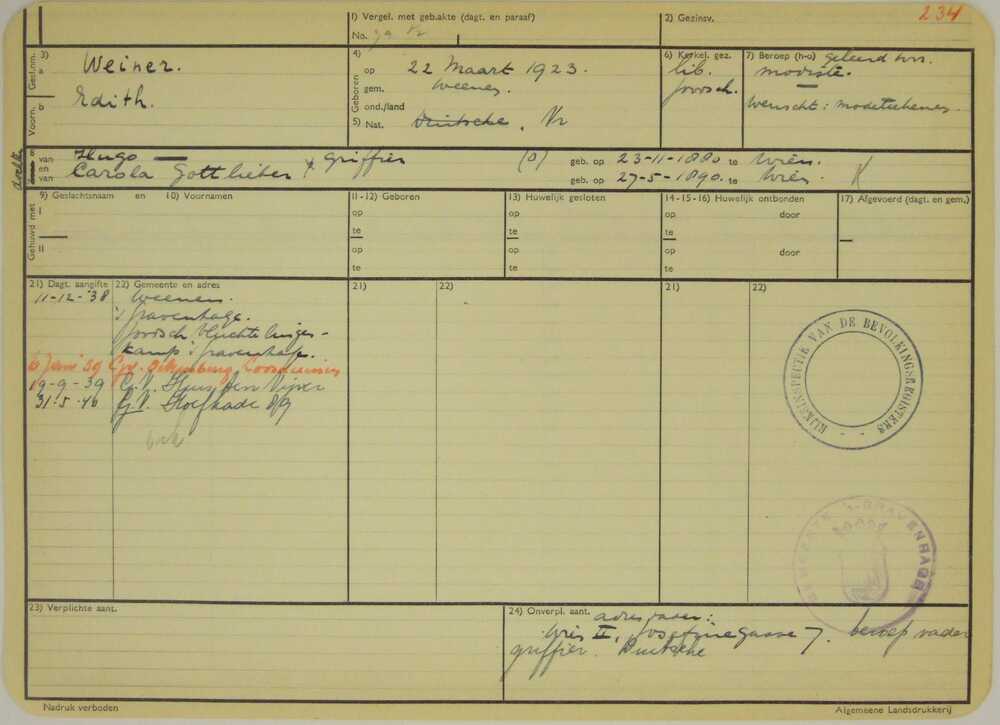 1) Vergel. met geb.akte (dagt. en paraaf)
No.
2) Gezinsv.
234
Gesl.nm. 3)
a Weiner.
Voorn. b Edith.
4)
Geboren
op 22 Maart 1923.
gem. Weenen.
ond./land
5) Nat. Duitsche. Nr
6) Kerkel. gez.
lib.
Joodsch.
7) Beroep (h-o) geleerd
modiste.
wenscht:
van Hugo — griffier (o) geb. op 23-11-1880 te Wien.
en
van Carola Gottlieber geb. op 27-5-1890 te Wien.
Gehuwd met
9) Geslachtsnaam en 10) Voornamen
I
II
11-12) Geboren
op
te
op
te
13) Huwelijk gesloten
op
te
op
te
14-15-16) Huwelijk ontbonden
op door
te
op door
te
17) Afgevoerd (dagt. en gem.)
21) Dagt. aangifte 22) Gemeente en adres 21) 22) 21) 22)
11-12-'38 Weenen.
's Gravenhage.
Joodsch vluchtelingen-
kamp 's Gravenhage.
19-9-39 G.V. Huis den Vijver
31-5-40 G.V. Hoefkade 89
RIJKSINSPECTIE VAN DE BEVOLKINGSREGISTERS
GEMEENTE 's-GRAVENHAGE
23) Verplichte aant.
24) Onverpl. aant.
adres vader:
Wien II, 7. beroep vader
griffier. Duitsche
Nadruk verboden
Algemene Landsdrukkerij